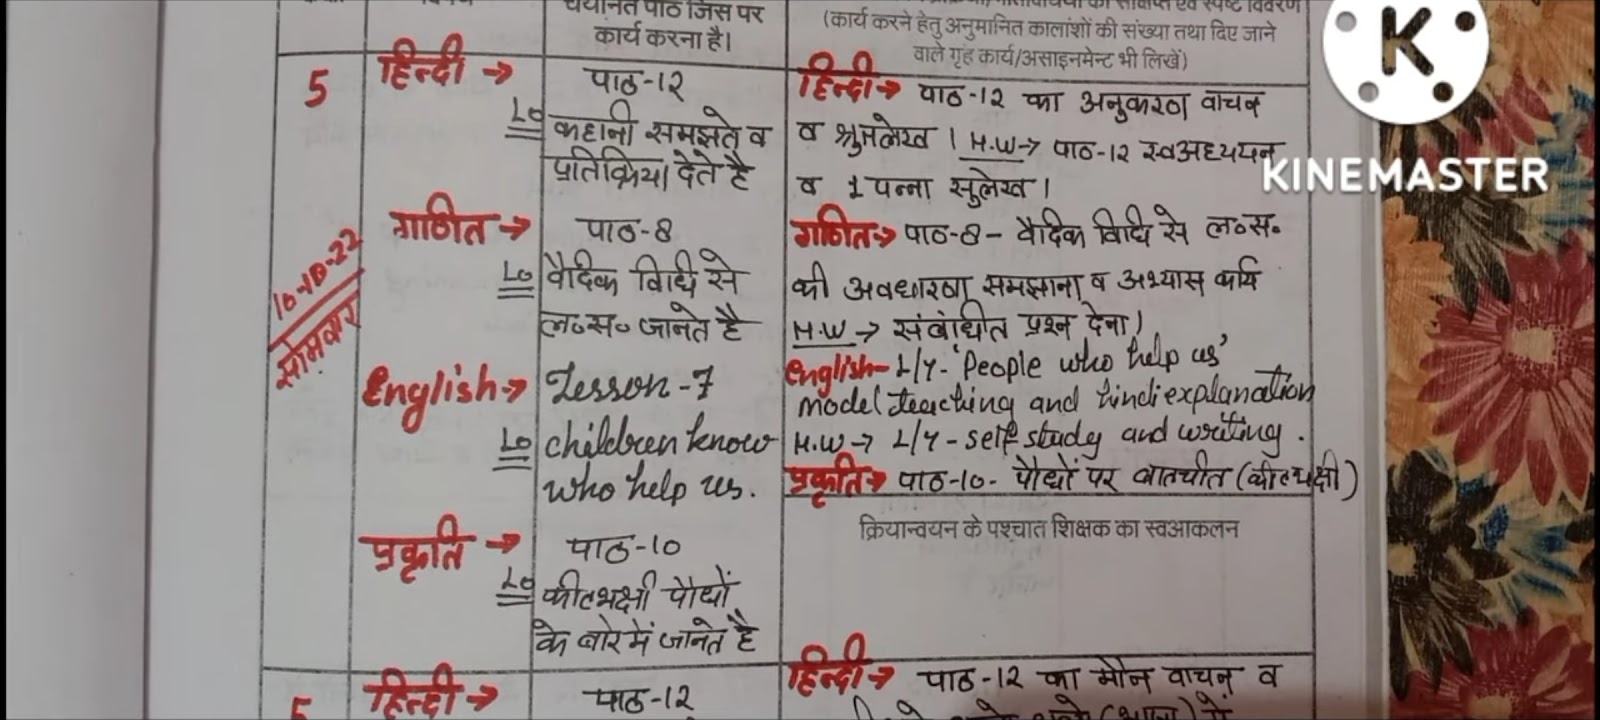 चयनित पाठ जिस पर
कार्य करना है।
(कार्य करने हेतु अनुमानित कालांशों की संख्या तथा दिए जाने
वाले गृह कार्य/असाइनमेन्ट भी लिखें)
K
KINEMASTER
5
10-10-22
सोमवार
हिन्दी →
पाठ-१२
LO कहानी समझते व
प्रतिक्रिया देते है
हिन्दी → पाठ-१२ का अनुकरण वाचन
व श्रुतलेख । H.W → पाठ-१२ स्वअध्ययन
व 1 पन्ना सुलेख ।
गणित →
पाठ-8
LO वैदिक विधि से
ल०स० जानते है
गणित → पाठ-8 - वैदिक विधि से ल०स०
की अवधारणा समझाना व अभ्यास कार्य
H.W → संबंधित प्रश्न देना।
English →
Lesson-7
LO children know
who help us.
English- L/7- 'People who help us'
model teaching and hindi explanation
H.W → L/7 - self study and writing .
प्रकृति → पाठ-10- पौधों पर बातचीत (कीटभक्षी)
क्रियान्वयन के पश्चात शिक्षक का स्वआकलन
प्रकृति →
पाठ-10
LO कीटभक्षी पौधों
के बारे में जानते है
5
हिन्दी →
पाठ-१२
हिन्दी → पाठ-१२ का मौन वाचन व